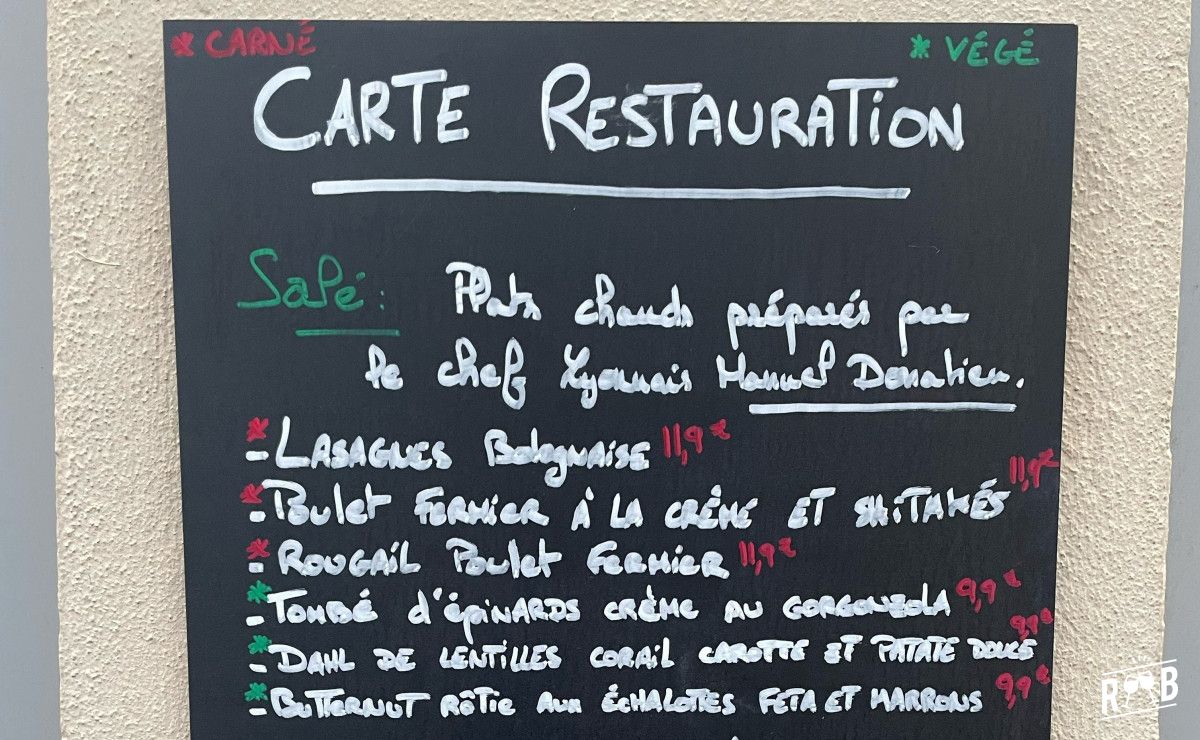 * CARNÉ
* VÉGÉ
CARTE RESTAURATION
Salé: Plats chauds préparés par
le chef Lyonnais Manuel Donatien.
* - LASAGNES Bolognaise 11,9€
* - Poulet FERMIER À LA CRÈME ET SHITAKÉS 11,9€
* - ROUGAIL Poulet FERMIER 11,9€
* - TOMBÉ d'épinARDS CRÈME AU GORGONZOLA 9,9€
* - DAHL DE LENTILLES CORAIL CAROTTE ET PATATE DOUCE 9,9€
* - BUTTERNUT RÔTIE AUX ÉCHALOTTES FETA ET MARRONS 9,9€
R B